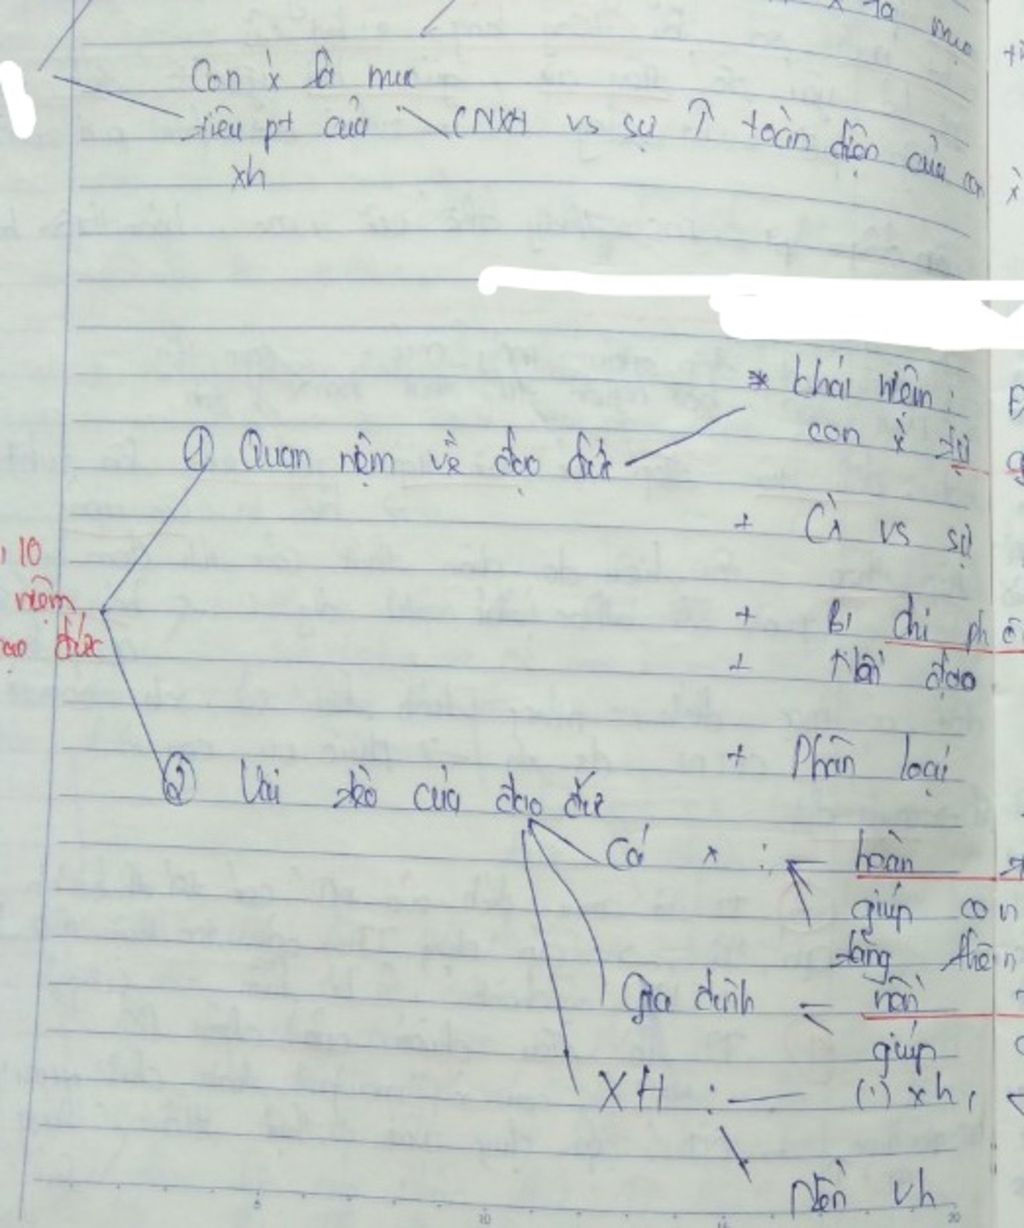 x ta mục
Con x̀ là mục
tiêu pt của CNXH vs sự ↑ toàn diện của con
xh
* Khái niệm:
① Quan niệm về đạo đức con x̀ tự
+ Cx̀ vs sự
, 10
niệm + Bị chi phố
đức + Nền đạo
+ Phân loại
② Vai trò của đạo đức
Cá x : hoàn
giúp con
tăng thêm
Gia đình nền
giúp
XH : (1) xh,
Nền vh